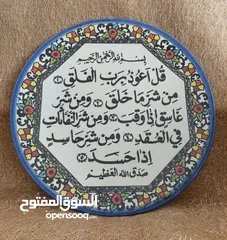 بسم الله الرحمن الرحيم
قل أعوذ برب الفلق
من شر ما خلق ومن شر
غاسق إذا وقب ومن شر النفاثات
في العقد ومن شر حاسد
إذا حسد
صدق الله العظيم
السوق المفتوح
opensooq.com